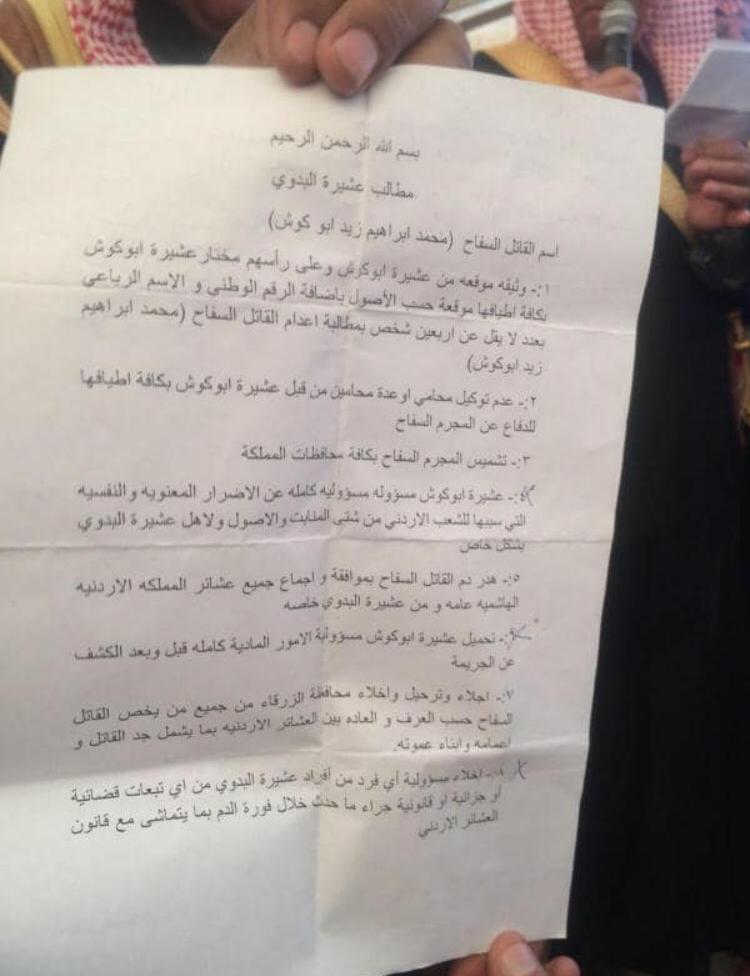 بسم الله الرحمن الرحيم
مطالب عشيرة البدوي
اسم القاتل السفاح (محمد ابراهيم زيد ابو كوش)
١:- وثيقه موقعه من عشيرة ابوكوش وعلى رأسهم مختار عشيرة ابوكوش
بكافة اطيافها موقعة حسب الأصول باضافة الرقم الوطني و الاسم الرباعي
بعدد لا يقل عن اربعين شخص بمطالبة اعدام القاتل السفاح (محمد ابراهيم
زيد ابوكوش)
٢:- عدم توكيل محامي اوعدة محامين من قبل عشيرة ابوكوش بكافة اطيافها
للدفاع عن المجرم السفاح
٣:- تشميس المجرم السفاح بكافة محافظات المملكة
٤:- عشيرة ابوكوش مسؤوله مسؤوليه كامله عن الاضرار المعنويه والنفسيه
التي سببها للشعب الاردني من شتى المنابت والاصول ولاهل عشيرة البدوي
بشكل خاص
٥:- هدر دم القاتل السفاح بموافقة و اجماع جميع عشائر المملكه الاردنيه
الهاشميه عامه و من عشيرة البدوي خاصه
٦:- تحميل عشيرة ابوكوش مسؤولية الامور المادية كامله قبل وبعد الكشف
عن الجريمة
٧:- اجلاء وترحيل واخلاء محافظة الزرقاء من جميع من يخص القاتل
السفاح حسب العرف و العاده بين العشائر الاردنيه بما يشمل جد القاتل و
اعمامه وابناء عمومته.
٨:- اخلاء مسؤولية أي فرد من أفراد عشيرة البدوي من اي تبعات قضائية
أو جزائية او قانونية جراء ما حدث خلال فورة الدم بما يتماشى مع قانون
العشائر الاردني